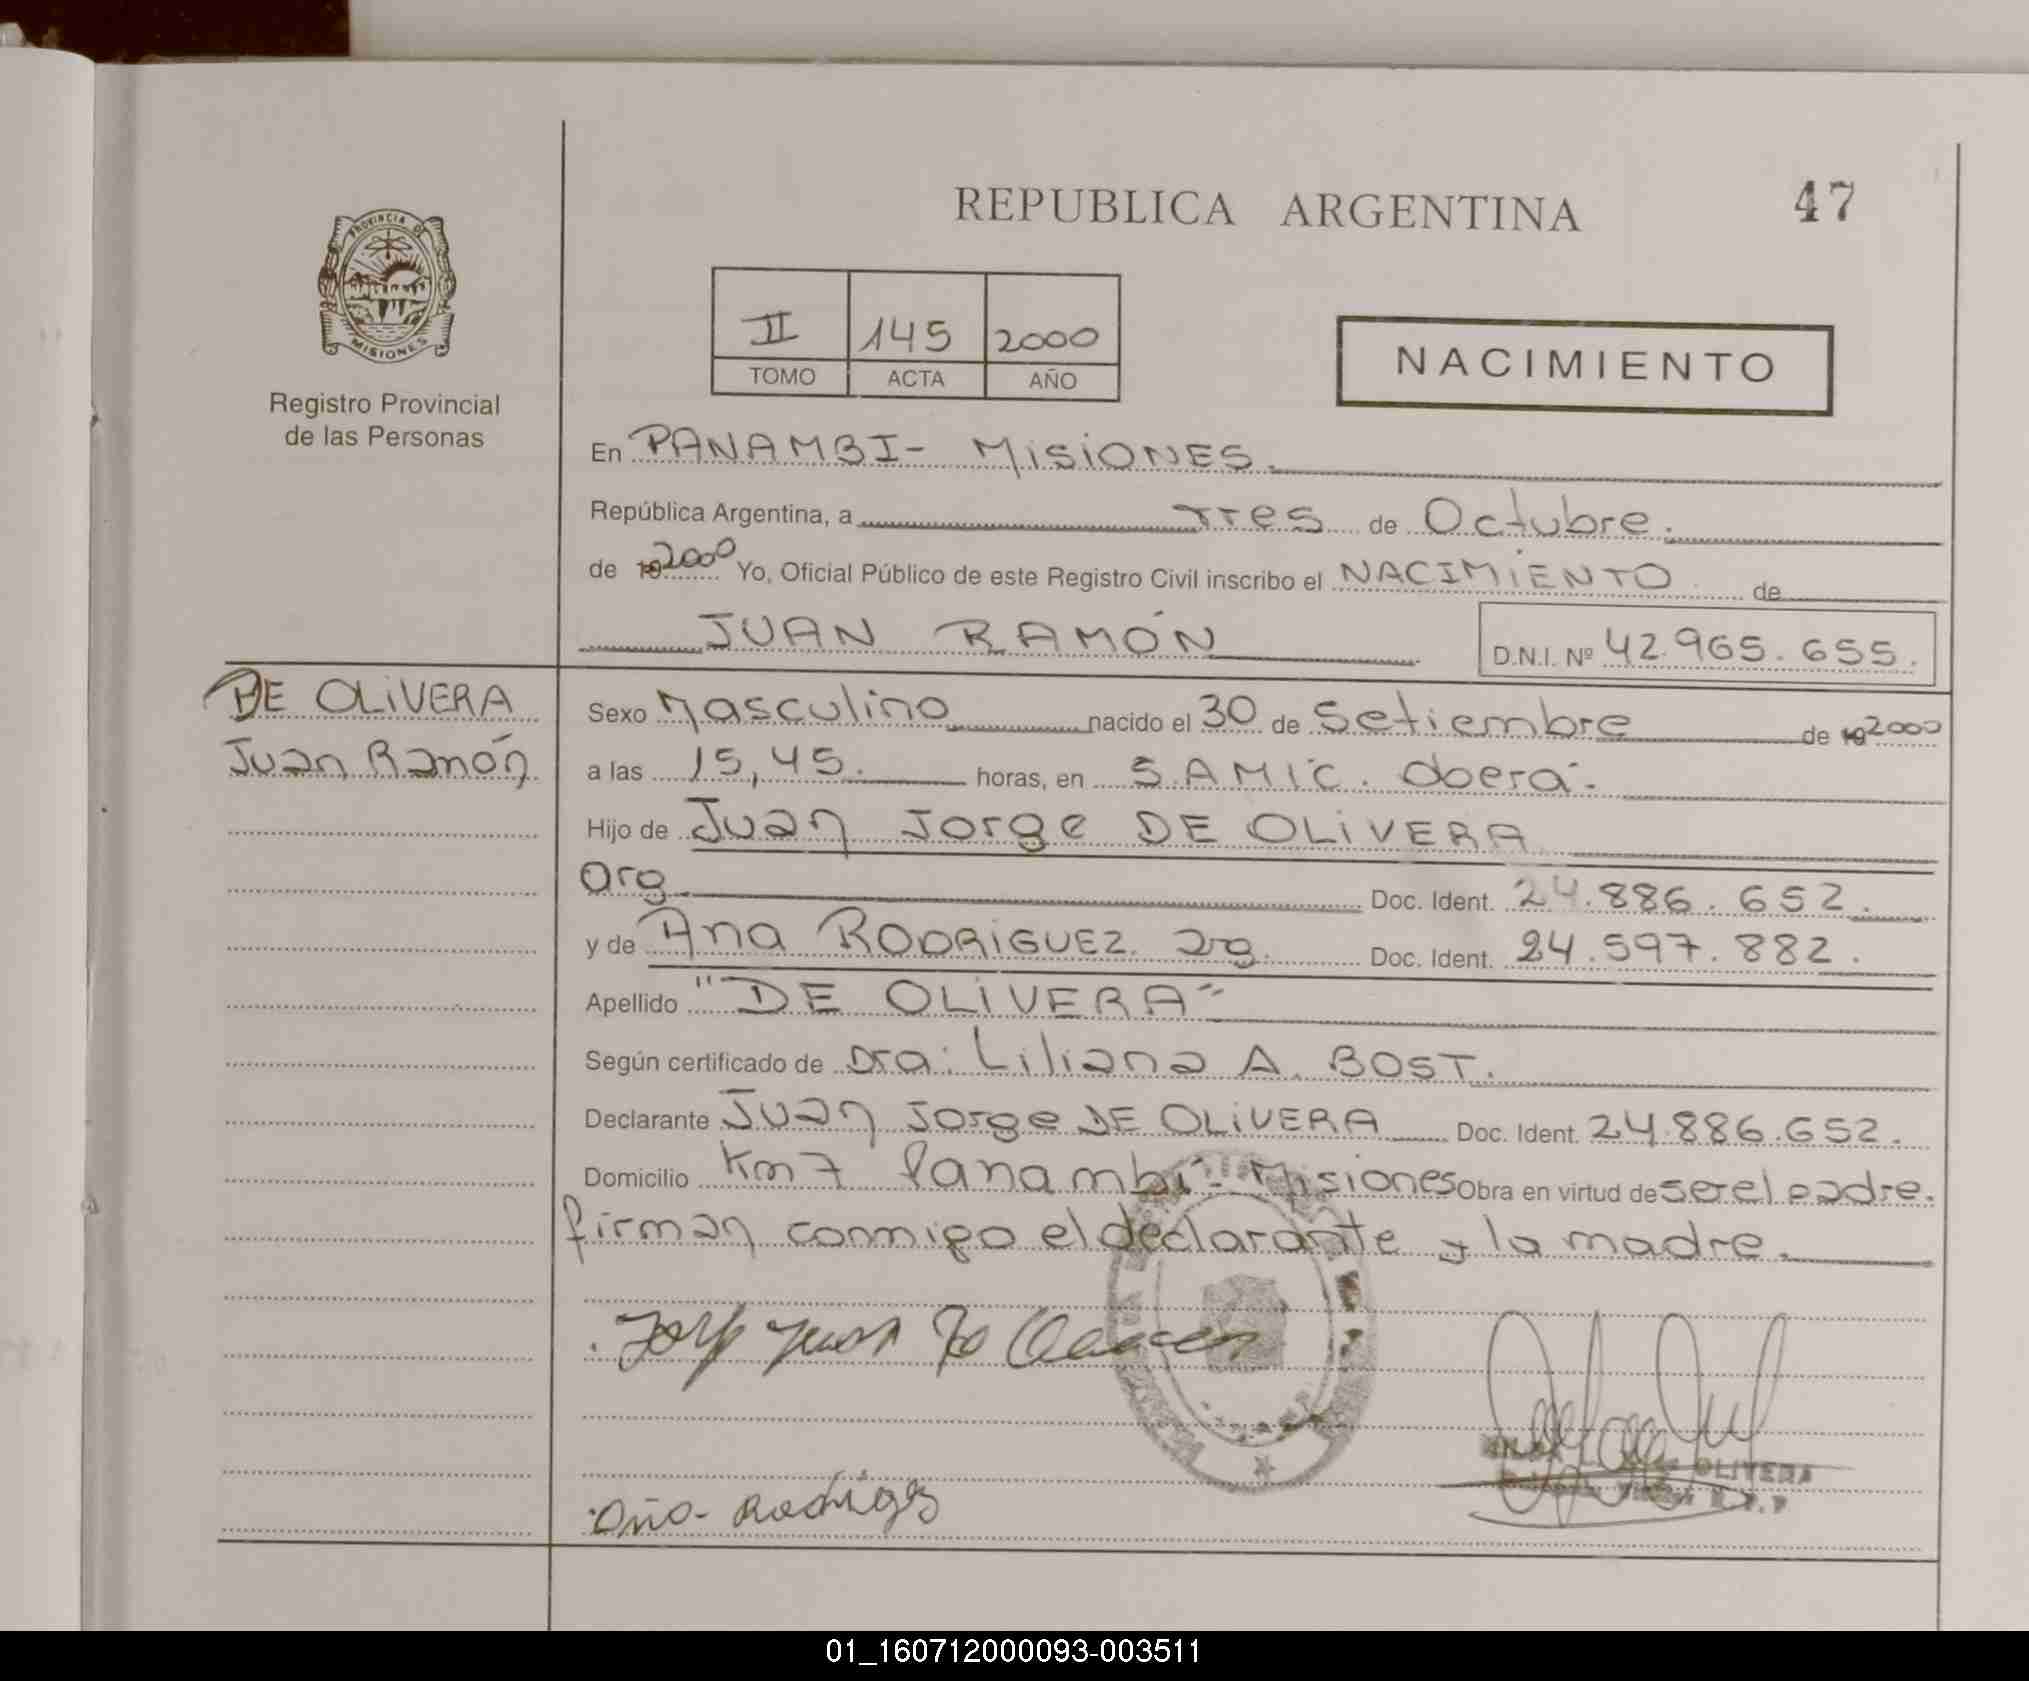 REPUBLICA ARGENTINA
47
PROVINCIA DE
MISIONES
Registro Provincial
de las Personas
II 145 2000
TOMO ACTA AÑO
NACIMIENTO
En PANAMBI- MISIONES.
República Argentina, a tres de Octubre.
de 19 2000 Yo, Oficial Público de este Registro Civil inscribo el NACIMIENTO de
JUAN RAMÓN
D.N.I. Nº 42.965.655.
DE OLIVERA
Juan Ramón
Sexo Masculino nacido el 30 de Setiembre de 19 2000
a las 15,45. horas, en S.A.M.I.C. Oberá.
Hijo de Juan Jorge DE OLIVERA
arg. Doc. Ident. 24.886.652.
y de Ana RODRIGUEZ. arg. Doc. Ident. 24.597.882.
Apellido "DE OLIVERA"
Según certificado de Dra: Liliana A. BOST.
Declarante Juan Jorge DE OLIVERA Doc. Ident. 24.886.652.
Domicilio Km 7 Panambí- Misiones Obra en virtud de ser el padre.
firman conmigo el declarante y la madre.
OLIVERA
01_160712000093-003511